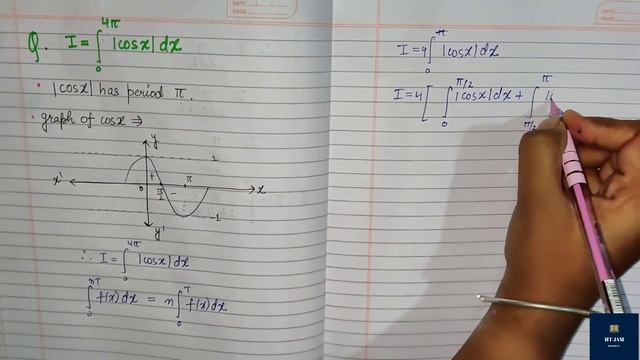 Q. I = ∫₀^{4π} |cosx| dx
• |cosx| has period π.
• graph of cosx ⇒
y
1
x' 0 + π/2 − π x
-1
y'
∴ I = ∫₀^{4π} |cosx| dx
∫₀^{nT} f(x) dx = n ∫₀^{T} f(x) dx
I = 4 ∫₀^{π} |cosx| dx
I = 4 [ ∫₀^{π/2} |cosx| dx + ∫_{π/2}^{π} |
IIT JAM